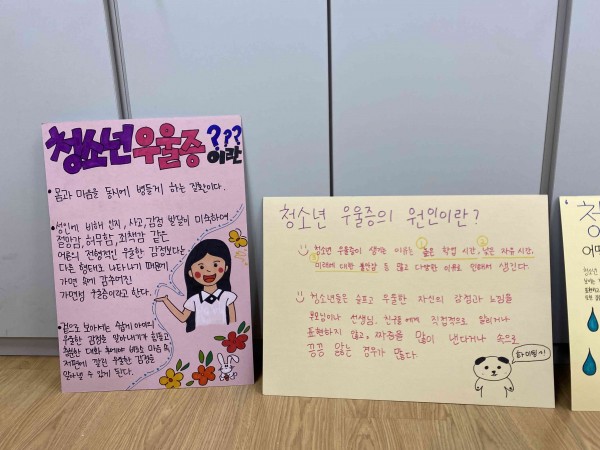 청소년 우울증 ???
이란
몸과 마음을 동시에 병들게 하는 질환이다.
성인에 비해 인지, 사고, 감정 발달이 미숙하여
절망감, 허무함, 죄책감 같은
어른의 전형적인 우울한 감정보다는
다른 형태로 나타나기 때문에
가면 속에 감추어진
가면성 우울증이라고 한다.
겉으로 보아서는 쉽게 아이의
우울한 감정을 알아내기가 힘들고
대화 마음 속
저편에 깔린 우울한 감정을
알아낼 수 있게 된다.
청소년 우울증의 원인이란?
청소년 우울증이 생기는 이유는 ① 많은 학업 시간, ② 낮은 자유 시간,
③ 미래에 대한 불안감 등 많고 다양한 이유로 인해서 생긴다.
청소년들은 슬프고 우울한 자신의 감정과 느낌을
부모님이나 선생님, 친구들에게 직접적으로 알리거나
표현하지 않고, 짜증을 많이 낸다거나 속으로
끙끙 앓는 경우가 많다.
화이팅!
청소년